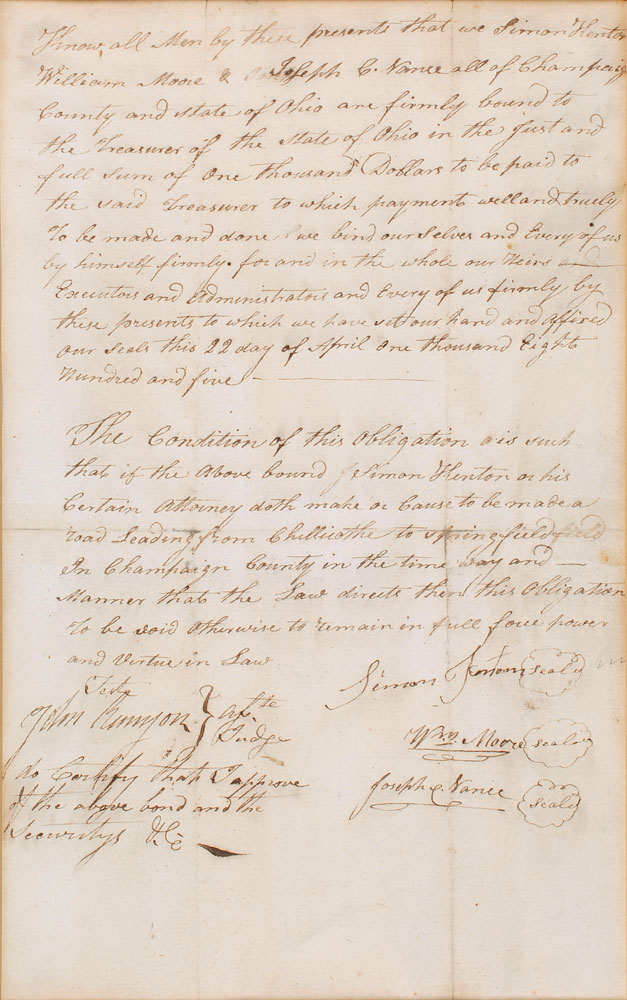 Know all Men by these presents that we Simon Kenton
William Moore & Joseph C. Vance all of Champaig
County and State of Ohio are firmly bound to
the Treasurer of the State of Ohio in the Just and
full Sum of One thousand Dollars to be paid to
the said Treasurer to which payment well and truely
To be made and done we bind our Selves and Every of us
by himself firmly for and in the whole our Heirs and
Executors and Administrators and Every of us firmly by
these presents to which we have set our hand and affixed
our Seals this 22 day of April One thousand Eight
Hundred and five
The Condition of this Obligation is such
that if the Above bound Simon Kenton or his
Certain Attorney doth make or Cause to be made a
road Leading from Chillicothe to Springfield
In Champaign County in the time way and
Manner that the Law directs then this Obligation
To be void Otherwise to remain in full force power
and Virtue in Law
Teste
Simon Kenton seal
John Runyon
Judge
Wm. Moore seal
do Certify that I approve
Joseph C. Vance do seal
of the above bond and the
Securitys &c